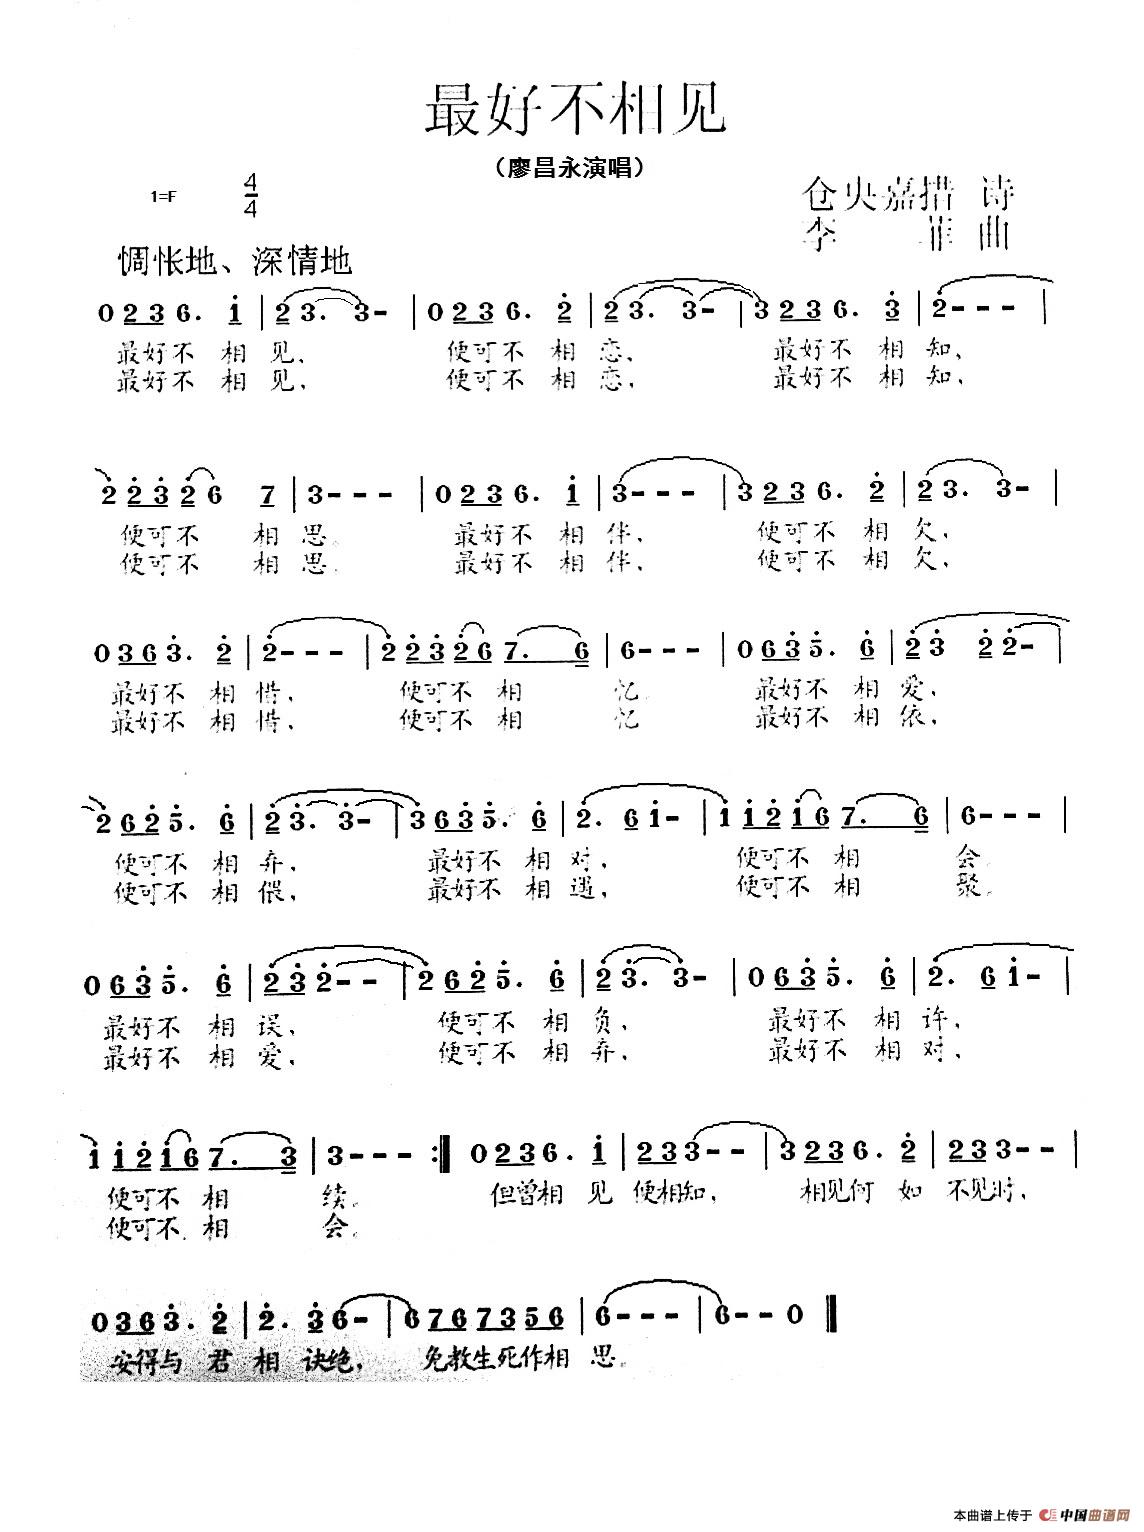 最好不相见
（廖昌永演唱）
1=F 4/4
仓央嘉措 诗
李 菲 曲
惆怅地、深情地
0 2 3 6 . 1 | 2 3 . 3 - | 0 2 3 6 . 2 | 2 3 . 3 - | 3 2 3 6 . 3 | 2 - - - |
最好不 相 见， 便可不 相 恋， 最好不 相 知，
最好不 相 见， 便可不 相 恋， 最好不 相 知，
2 2 3 2 6 7 | 3 - - - | 0 2 3 6 . 1 | 3 - - - | 3 2 3 6 . 2 | 2 3 . 3 - |
便可不 相 思。 最好不 相 伴， 便可不 相 欠，
便可不 相 思。 最好不 相 伴， 便可不 相 欠，
0 3 6 3 . 2 | 2 - - - | 2 2 3 2 6 7 . 6 | 6 - - - | 0 6 3 5 . 6 | 2 3 2 2 - |
最好不 相 惜， 便可不 相 忆。 最好不 相 爱，
最好不 相 惜， 便可不 相 忆 最好不 相 依，
2 6 2 5 . 6 | 2 3 . 3 - | 3 6 3 5 . 6 | 2 . 6 1 - | 1 1 2 1 6 7 . 6 | 6 - - - |
便可不 相 弃， 最好不 相 对， 便可不 相 会。
便可不 相 偎， 最好不 相 遇， 便可不 相 聚。
0 6 3 5 . 6 | 2 3 2 - - | 2 6 2 5 . 6 | 2 3 . 3 - | 0 6 3 5 . 6 | 2 . 6 1 - |
最好不 相 误， 便可不 相 负， 最好不 相 许，
最好不 相 爱， 便可不 相 弃， 最好不 相 对，
1 1 2 1 6 7 . 3 | 3 - - - :| 0 2 3 6 . 1 | 2 3 3 - | 3 2 3 6 . 2 | 2 3 3 - |
便可不 相 续。 但曾相 见 便相知， 相见何 如 不见时，
便可不 相 会。
0 3 6 3 . 2 | 2 . 3 6 - | 6 7 6 7 3 5 6 | 6 - - - | 6 - - 0 ||
安得与 君 相 诀绝， 免教生死作相 思。
本曲谱上传于 中国曲谱网